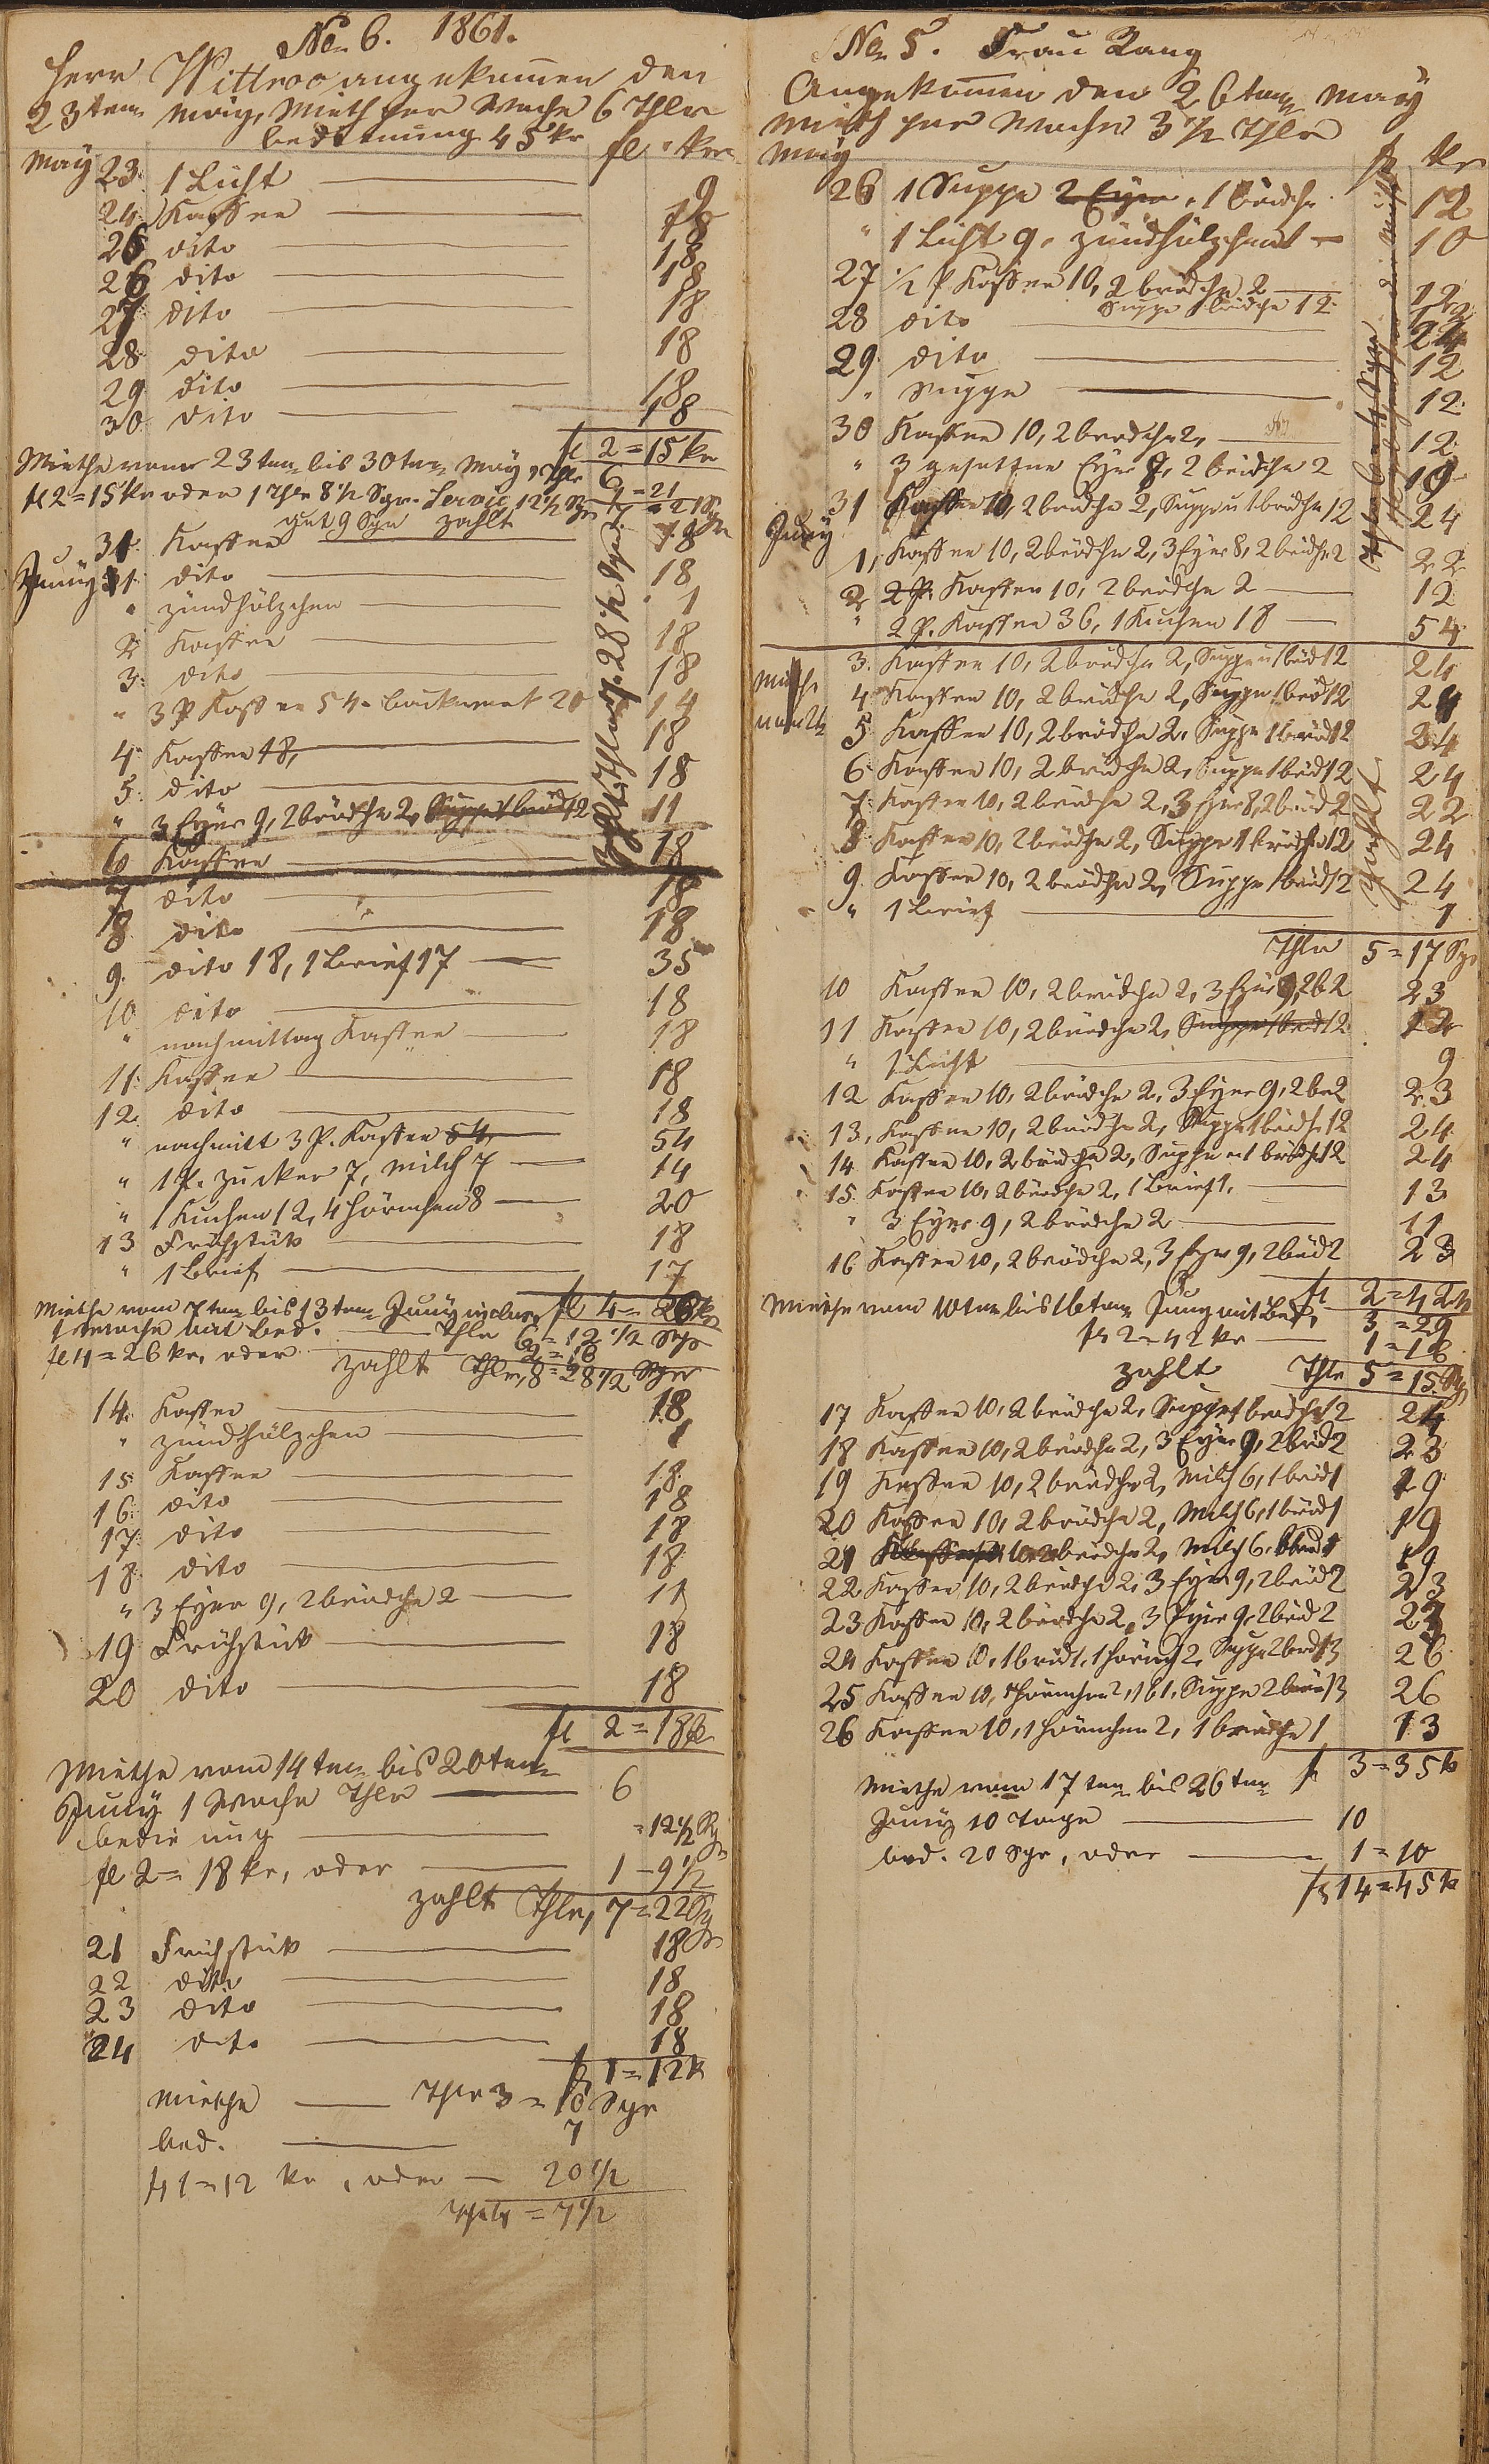 No 6. 1861.
Herr Wittroo angekommen den
23ten May, Mieth per Woche 6 Thlr
bedienung 45 kr
fl. kr
May 23. 1 Licht 9
24. Kaffee 18
25 dito 18
26 dito 18
27 dito 18
28 dito 18
29 dito 18
30 dito 18
fl 2 = 15 kr
Miethe vom 23ten bis 30ten May, Thlr 6
fl 2 = 15 kr oder 1 Thlr 8 1/2 Sgr. Servic 12 1/2 Sgr 1 = 21
gut 9 Sgr zahlt 7. = 21 Sgr
31. Kaffee 18
Juny 1. dito 18
" zündhölzchen 1
2 Kaffee 18
3. dito 18
" 3 P Kaffee 54. backwerk 20 14
4. Kaffee 18, 18
5. dito 18
" 3 Eyer 9, 2 brödche 2, Suppe 1 bröd 12 11
6 Kaffee 18
zahlt Thlr 7. 28 1/2 Sgr.
7 dito 18
8 dito 18
9. dito 18, 1 Brief 17 35
10 dito 18
" nachmittag Kaffee 18
11. Kaffee 18
12. dito 18
" nachmitt 3 P. Kaffee 54, 54
" 1 P. Zucker 7, Milch 7 14
" 1 Kuchen 12, 4 hörnchen 8 20
13 Frühstük 18
" 1 Brief 17
fl 4 = 26 kr
Miethe vom 7ten bis 13ten Juny inclus.
1 Woche mit bed. Thlr 6 = 12 1/2 Sgr
fl 4 = 26 kr, oder 2 = 16
zahlt Thlr, 8 = 28 1/2 Sgr
14. Kaffee 18
" zündhölzchen 1
15 Kaffee 18
16. dito 18
17. dito 18
18. dito 18
" 3 Eyer 9, 2 brödche 2 11
19 Frühstük 18
20 dito 18
fl 2 = 18 kr
Miethe vom 14ten bis 20ten
Juny 1 Woche Thlr 6
bedienung = 12 1/2 Sgr
fl 2 = 18 kr, oder 1 - 9 1/2
zahlt Thlr, 7 = 22 Sgr
21 Frühstük 18
22 dito 18
23 dito 18
24 dito 18
fl 1 = 12 kr
Miethe Thlr 3 = 10 Sgr
bed. 7
fl 1 = 12 kr, oder 20 1/2
= 7 1/2
No 5. Frau Rang
Angekommen den 26ten May
Mieth per Woche 3 1/2 Thlr
May fl kr
26 1 Suppe 2 Eyer, 1 brödche 12
" 1 Licht 9, zündhölzchen 1 10
27 1/2 P Kaffee 10, 2 brödche 2 12
28 dito Suppe 1 brödche 12 24
29 dito 12
" Suppe 12
30 Kaffee 10, 2 brödche 2, 12
" 3 gesottne Eyer 8, 2 brödche 2 10
31 Kaffee 10, 2 brodche 2, Suppe u 1 brödche 12 24
Juny
1, Kaffee 10, 2 brödche 2, 3 Eyer 8, 2 brödche 2 22
2 2 P. Kaffee 10, 2 brödche 2 12
" 2 P. Kaffee 36, 1 Kuchen 18 54
3. Kaffee 10, 2 brödche 2, Suppe u 1 bröd 12 24
4 Kaffee 10, 2 brödche 2, Suppe 1 bröd 12 24
5 Kaffee 10, 2 brödche 2, Suppe 1 bröd 12 24
6. Kaffee 10, 2 brödche 2, Suppe 1 bröd 12 24
7. Kaffee 10, 2 brödche 2, 3 Eyer 8, 2 bröd 2 22
8. Kaffee 10, 2 brödche 2, Suppe 1 brödche 12 24
9. Kaffee 10, 2 brödche 2, Suppe 1 bröd 12 24
" 1 Brief 1
bezahlt
Thlr 5 = 17 Sgr
10 Kaffee 10, 2 brödche 2, 3 Eyer 9, 2 b 2 23
11 Kaffee 10, 2 brödche 2, Suppe 1 bröd 12 12
" 1 Licht 9
12 Kaffee 10, 2 brödche 2, 3 Eyer 9, 2 br 2 23
13, Kaffee 10, 2 brödche 2, Suppe 1 brödche 12 24
14 Kaffee 10, 2 brödche 2, Suppe u 1 brödche 12 24
15. Kaffee 10, 2 brödche 2, 1 Brief 1, 13
" 3 Eyer 9, 2 brödche 2 11
16 Kaffee 10, 2 brödche 2, 3 Eyer 9, 2 bröd 2 23
fl 2 = 42 kr
Miethe vom 10ten bis 16ten Juny mit Bed, 3 = 29
fl 2 = 42 kr 1 = 16
zahlt Thlr 5 = 15 Sgr
17 Kaffee 10, 2 brödche 2, Suppe 1 brödche 12 24
18 Kaffee 10, 2 brödche 2, 3 Eyer 9, 2 bröd 2 23
19 Kaffee 10, 2 brödche 2, Milch 6, 1 bröd 1 19
20 Kaffee 10, 2 brödche 2, Milch 6, 1 bröd 1 19
21 Kaffee 10, 2 brödche 2, Milch 6, 1 bröd 1 19
22 Kaffee 10, 2 brödche 2, 3 Eyer 9, 2 bröd 2 23
23 Kaffee 10, 2 brödche 2, 3 Eyer 9, 2 bröd 2 23
24 Kaffee 10, 1 bröd 1, 1 hörnch 2, Suppe 2 bröd 13 26
25 Kaffee 10, 1 hörnchen 2, 1 b 1, Suppe 2 brö 13 26
26 Kaffee 10, 1 hörnchen 2, 1 brödche 1 13
fl 3 = 35 kr
Miethe vom 17ten bis 26ten
Juny 10 Tage 10
bed. 20 Sgr, oder 1 = 10
fl 14 = 45 kr